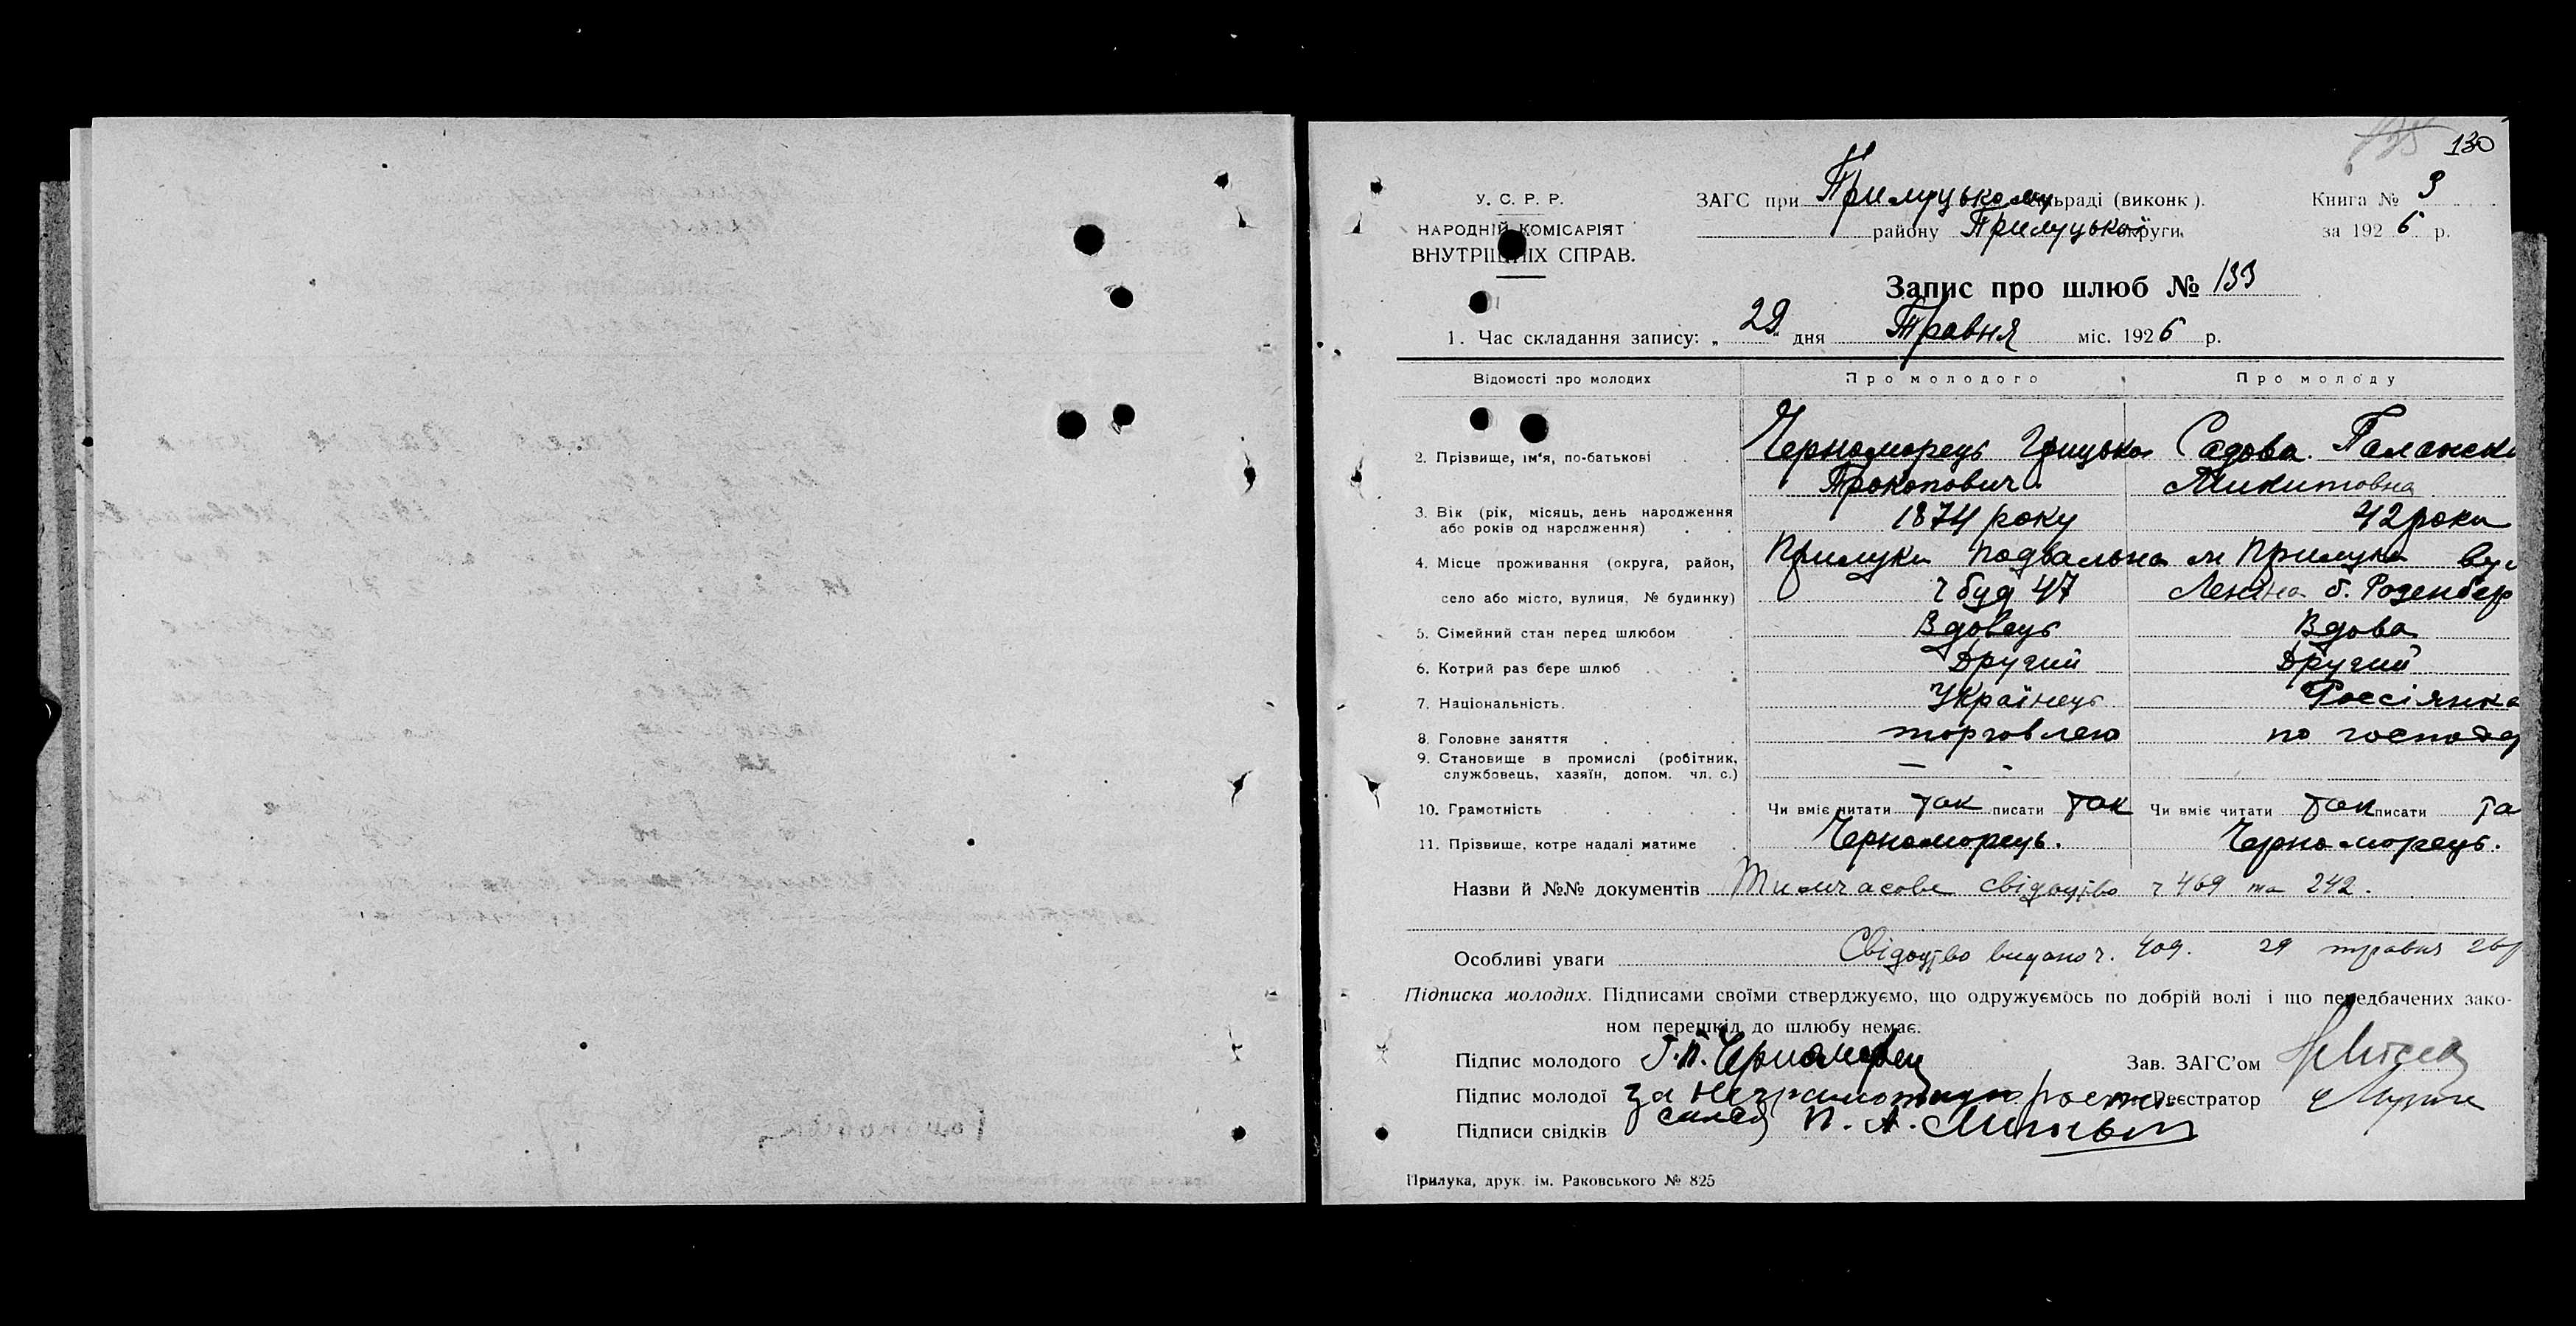 130
У. С. Р. Р.
НАРОДНІЙ КОМІСАРІЯТ
ВНУТРІШНІХ СПРАВ.
ЗАГС при Прилуцькому сільраді (виконк).
району Прилуцької округи.
Книга № 3
за 1926 р.
Запис про шлюб № 133
1. Час складання запису: „29" дня Травня міс. 1926 р.
Відомості про молодих Про молодого Про молоду
2. Прізвище, ім'я, по-батькові Черноморець Грицько Садова
Прокопович. Микитовна
3. Вік (рік, місяць, день народження або років од народження) 1874 року 42 роки
4. Місце проживання (округа, район, Прилуки Подвальна м Прилуки вул
село або місто, вулиця, № будинку) ч буд 47 Леніна б. Розенбер
5. Сімейний стан перед шлюбом Вдовець Вдова
6. Котрий раз бере шлюб Другий Другий
7. Національність. Українець Россіянка
8. Головне заняття торговлею по господ
9. Становище в промислі (робітник, службовець, хазяїн, допом. чл. с.) — -
10. Грамотність Чи вміє читати так писати так Чи вміє читати так писати та
11. Прізвище, котре надалі матиме Черноморець. Черноморець.
Назви й №№ документів Тимчасове свідоцтво ч 469 та 242.
Особливі уваги Свідоцтво видано ч. 409. 29 травня 26р
Підписка молодих. Підписами своїми стверджуємо, що одружуємось по добрій волі і що передбачених зако-
ном перешкід до шлюбу немає.
Підпис молодого Г. П. Черноморец
Зав. ЗАГС'ом
Підпис молодої за неграмотную
Реєстратор
Підписи свідків П. А.
Прилука, друк. ім. Раковського № 825